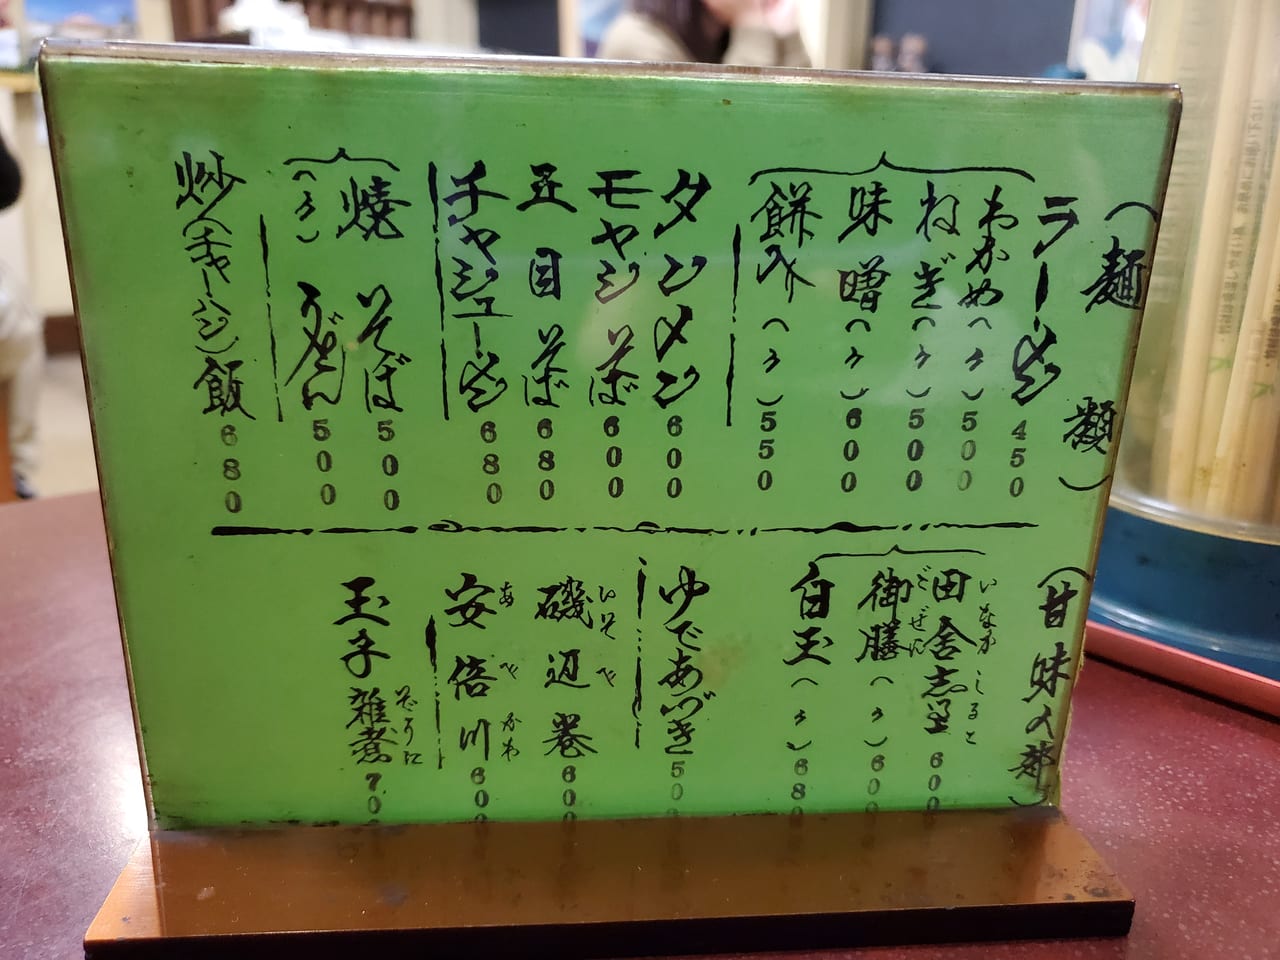 (麺類)
ラーメン 450
わかめ(〃) 500
ねぎ(〃) 500
味噌(〃) 600
餅入(〃) 550
タンメン 600
モヤシそば 600
五目そば 680
チャシューメン 680
焼そば 500
(〃)うどん 500
炒(チャーハン)飯 680
(甘味の部)
田舎志る古 600
いなか しるこ
御膳(〃) 600
ごぜん
白玉(〃) 680
ゆであづき 50
磯辺巻 60
いそべ
安倍川 60
あべかわ
玉子雑煮 70
ぞうに